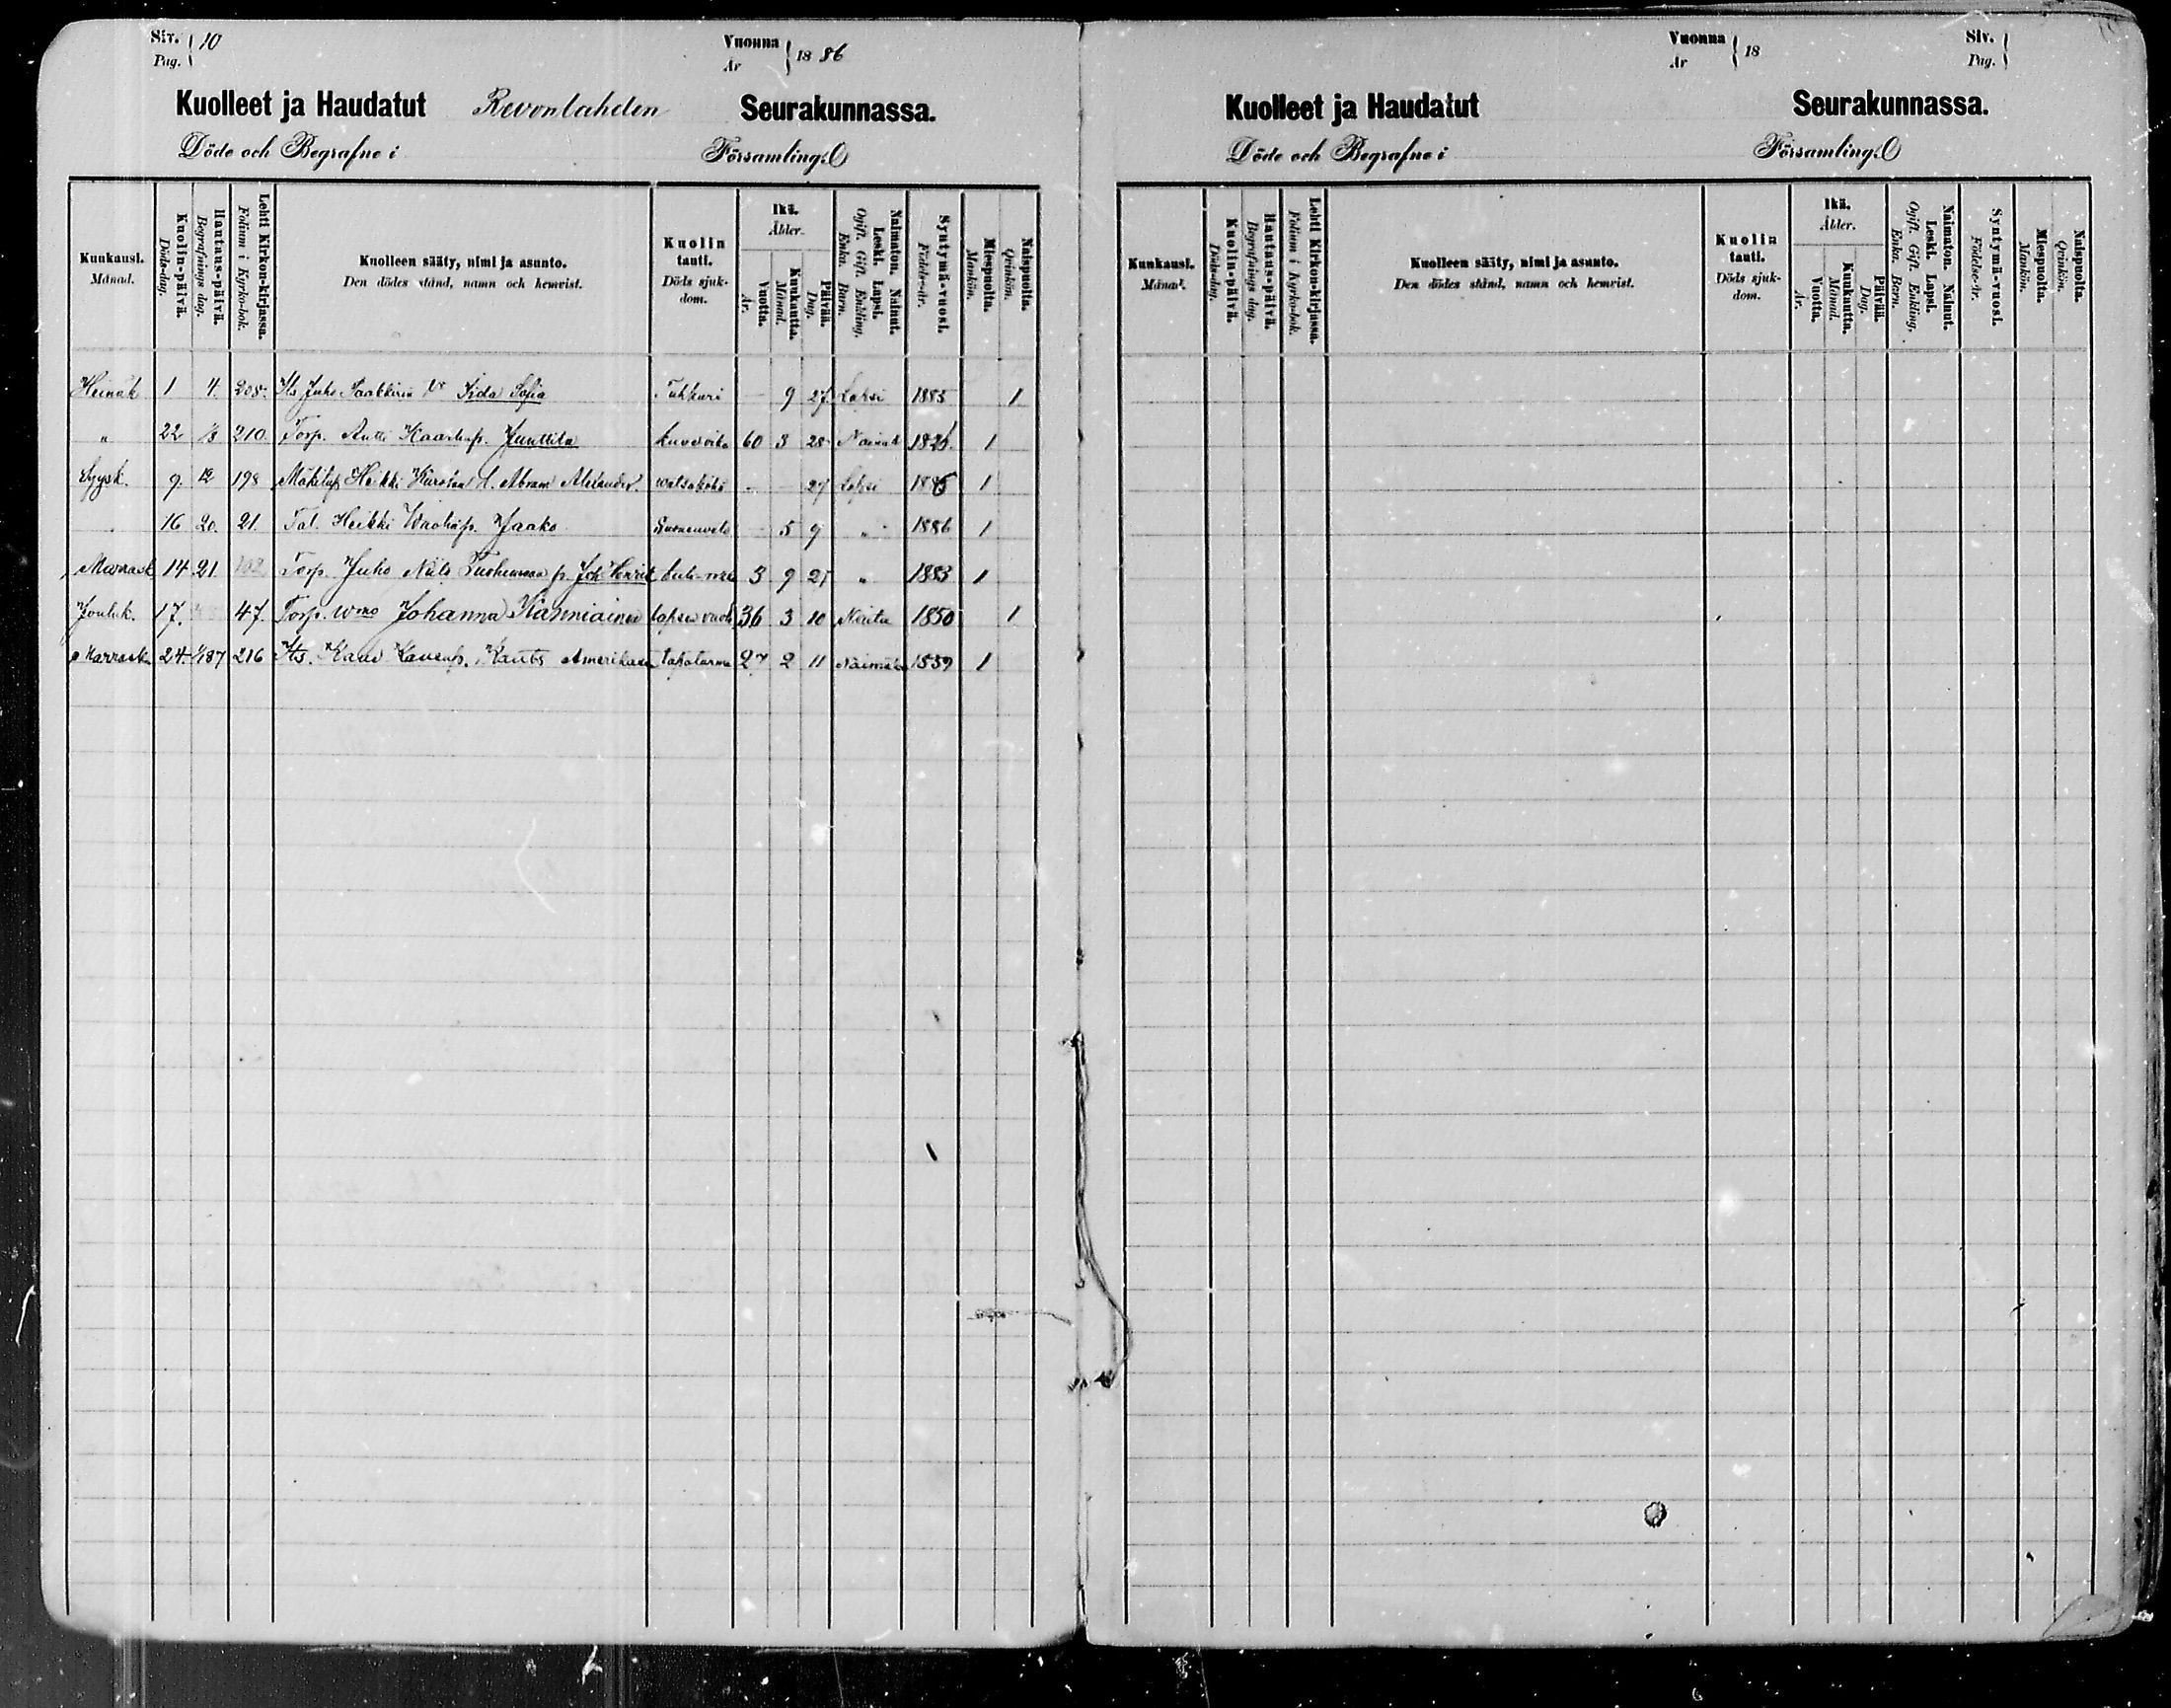 Siv. 10
Pag.
Vuonna 1886
År
Kuolleet ja Haudatut Revonlahden Seurakunnassa.
Döde och Begrafne i Församling.
Kuukausi. Månad.
Kuolin-päivä. Döds-dag.
Hautaus-päivä. Begrafnings dag.
Lehti Kirkon-kirjassa. Folium i Kyrko-bok.
Kuolleen sääty, nimi ja asunto.
Den dödes stånd, namn och hemvist.
Kuolin tauti. Döds sjukdom.
Ikä. Ålder.
Vuotta. År.
Kuukautta. Månad.
Päivää. Dag.
Naimaton. Nainut. Leski. Lapsi.
Ogift. Gift. Enkling. Enka. Barn.
Syntymä-vuosi. Födelse-år.
Miespuolta. Mankön.
Naispuolta. Qvinkön.
Heinäk 1 4. 208. Its Juho Saakkirin tr Iida Sofia Tuhkuri – 9 27 Lapsi 1885 1
" 22 1/8 210 Torp. Antti Kaarlep. Junttila 60 3 28 Nainut 1826. 1
Syysk. 9. 12 198 Mäkitup Heikki l. Abram Alexander. 27 Lapsi 1886 1
16 20. 21. Tal. Heikki Jaako – 5 9 " 1886 1
Marrask 14 21 Torp. Juho Niilo p. Joh Henrik 3 9 25 " 1883 1
Jouluk. 17. 47. Torp. wmo Johanna Kanniainen lapsen vuode 36 3 10 1850 1
Marrask 24. 1/1 87 216 Its. p. Amerikassa tapaturma 27 2 11 1859 1
Vuonna 18
År
Siv.
Pag.
Kuolleet ja Haudatut Seurakunnassa.
Döde och Begrafne i Församling.
Kuukausi. Månad.
Kuolin-päivä. Döds-dag.
Hautaus-päivä. Begrafnings dag.
Lehti Kirkon-kirjassa. Folium i Kyrko-bok.
Kuolleen sääty, nimi ja asunto.
Den dödes stånd, namn och hemvist.
Kuolin tauti. Döds sjukdom.
Ikä. Ålder.
Vuotta. År.
Kuukautta. Månad.
Päivää. Dag.
Naimaton. Nainut. Leski. Lapsi.
Ogift. Gift. Enkling. Enka. Barn.
Syntymä-vuosi. Födelse-år.
Miespuolta. Mankön.
Naispuolta. Qvinkön.